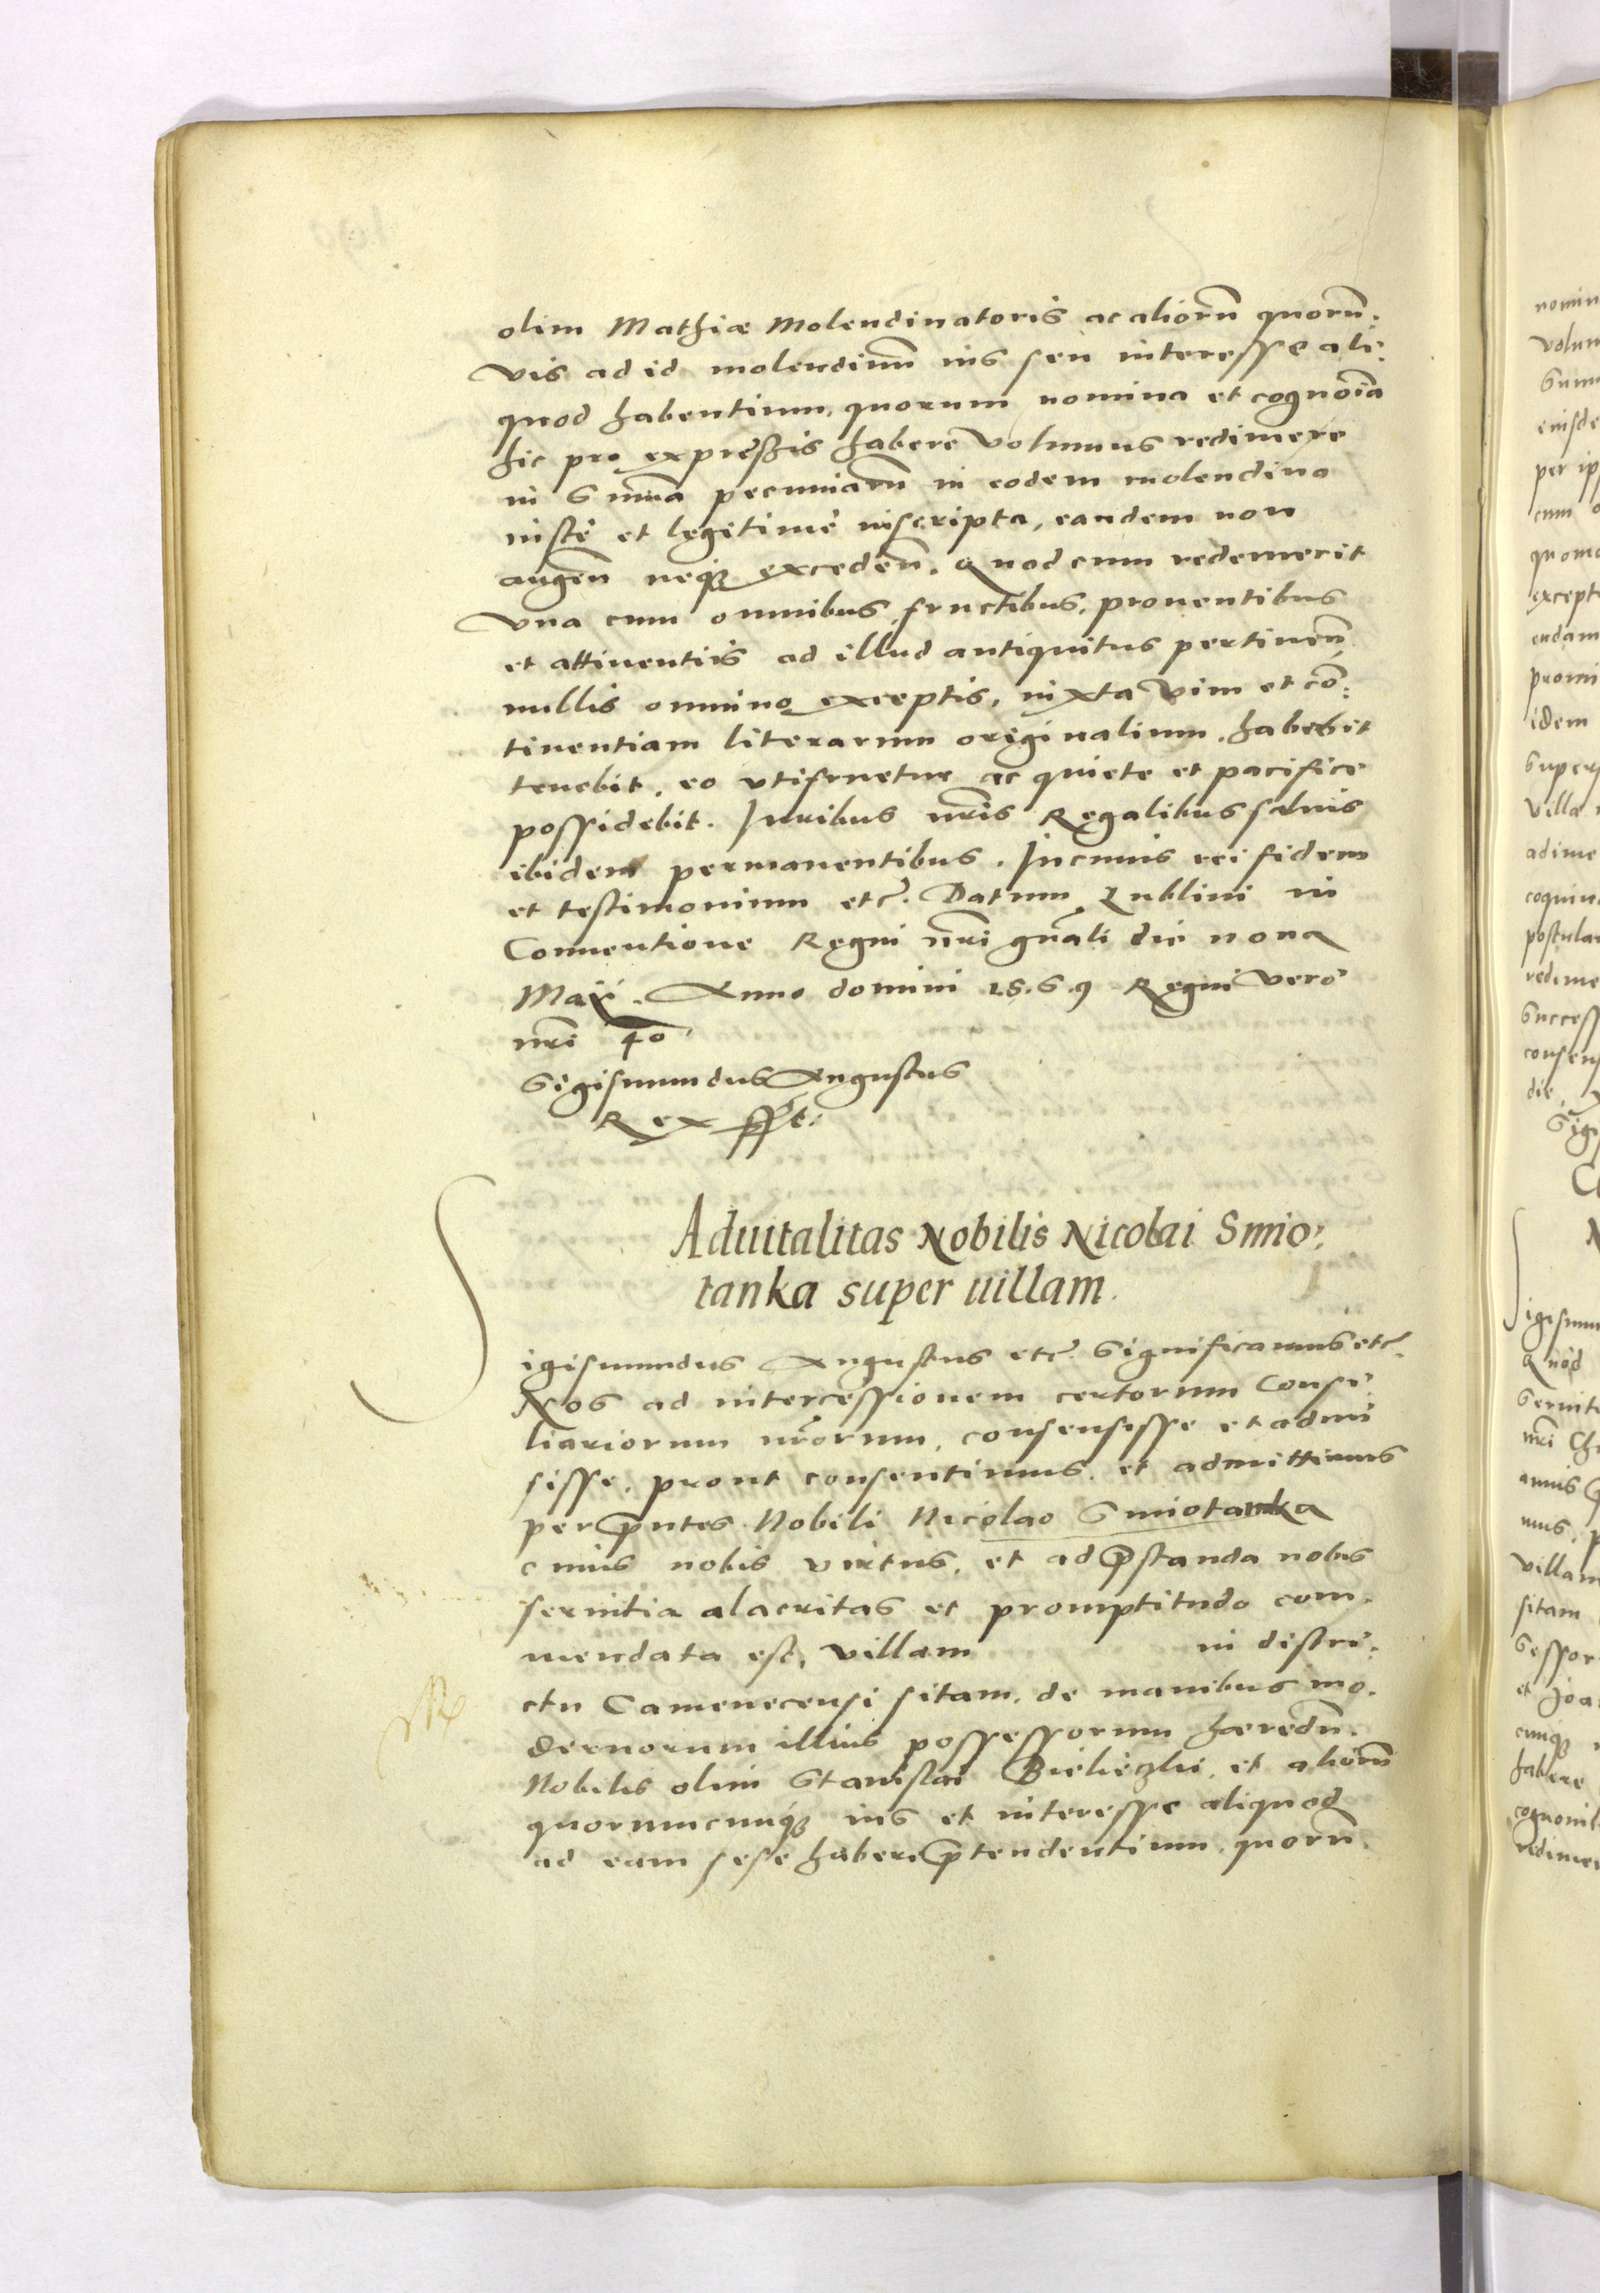 olim Mathiæ Molendinatoris ac aliorũ quorũ:
vis ad id molendinũ ius seu interesse ali:
quod habentium, quorum nomina et cognoĩa
hic pro expressis habere volumus redimere
in summa pecuniarũ in eodem molendino
iuste et legitime inscripta, eandem non
augeñ neq₃ excedeñ. Quod cum redemerit
vna cum omnibus, fructibus, prouentibus
et attinentiis ad illud antiquitus pertineñ
nullis omnino exceptis, iuxta vim et cõ:
tinentiam literarum originalium, habebit
tenebit, eo vtifruetur ac quiete et pacifice
possidebit. Iuribus nr̃is Regalibus saluis
ibidem permanentibus. In cuius rei fidem
et testimonium etc̃. Datum Lublini in
Conuentione Regni nr̃i gñali die nona
Maii. Anno domini 1569 Regni vero
nr̃i 40
Sigismundus Augustus
Rex sst:
Aduitalitas Nobilis Nicolai Smio:
tanka super uillam.
Sigismundus Augustus etc̃. Significamus etc̃.
Nos ad intercessionem certorum Consi:
liariorum nr̃orum, consensisse et admi
sisse, prout consentimus et admittimus
per p̃ntes Nobili Nicolao Smiotanka
cuius nobis virtus, et ad p̃standa nobis
seruitia alacritas et promptitudo com:
mendata est, villam in distri:
ctu Camenecensi sitam, de manibus mo:
dernorum illius possessorum hæredũ.
Nobilis olim Stanislai Bieliczki, et aliorũ
quorumcunq₃ ius et interesse aliquod
ad eam sese habere p̃tendentium, quorũ.